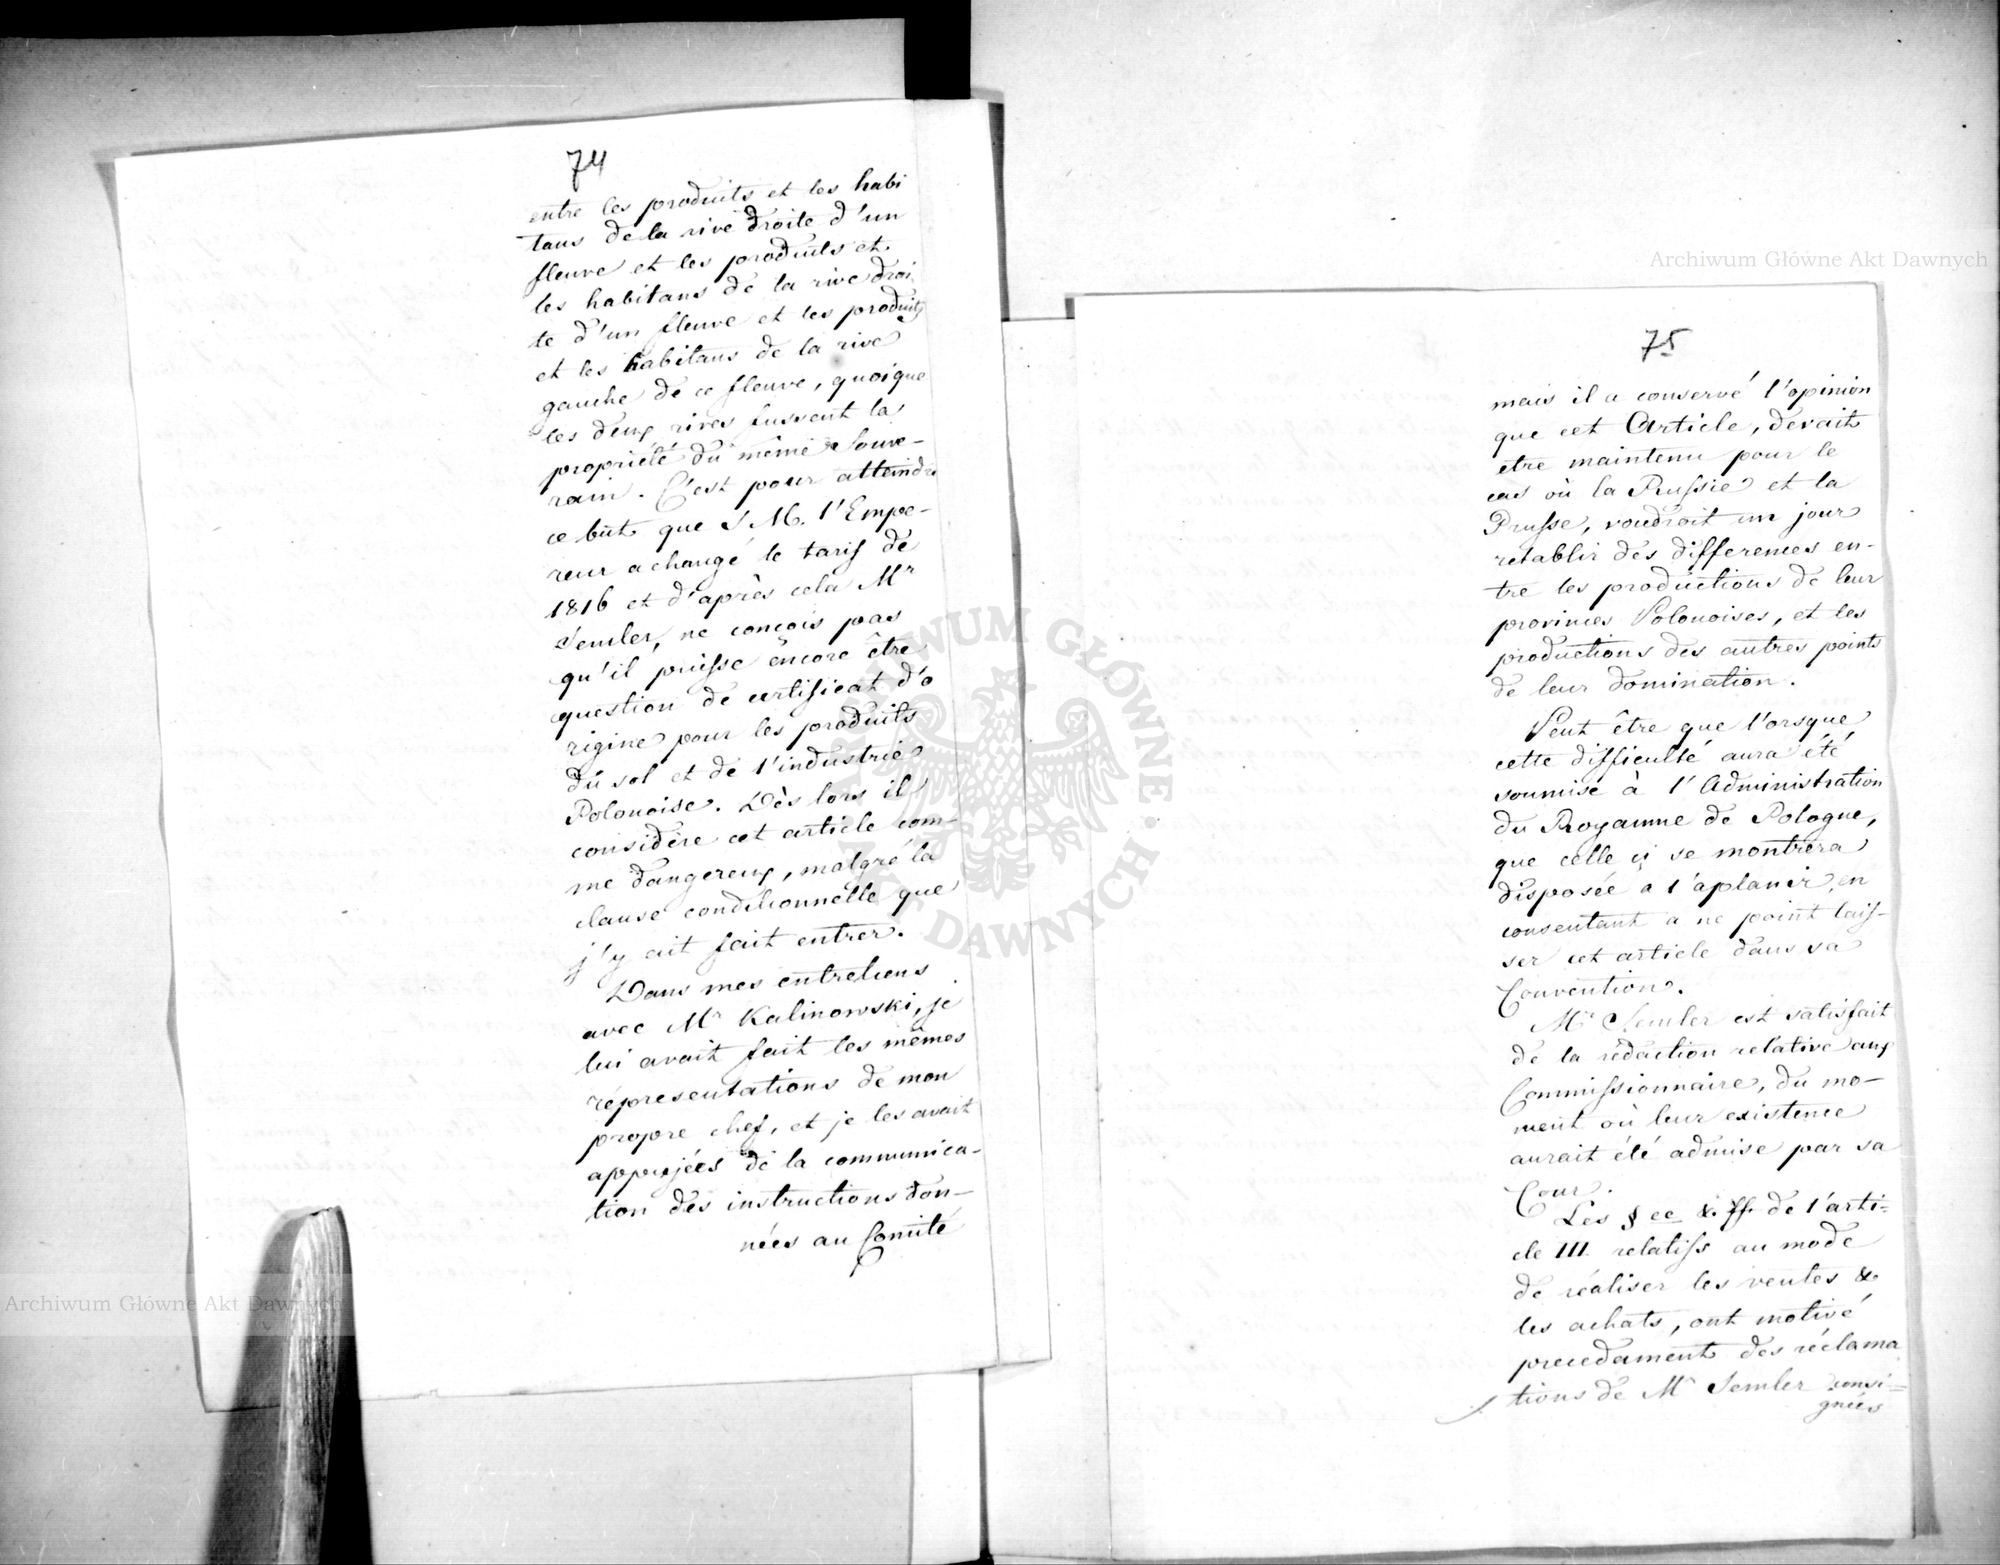 74
entre les produits et les habi
tans de la rive droite d'un
fleuve et les produits et
les habitans de la rive droi
te d'un fleuve et les produits
et les habitans de la rive
gauche de ce fleuve, quoique
les deux rives fussent la
propriété du même Souve-
rain. C'est pour atteindre
ce but que S M. l'Empe-
reur a changé le tarif de
1816 et d'après cela Mr
Semler, ne conçois pas
qu'il puisse encore être
question de certificat d'o
rigine pour les produits
du sol et de l'industrie
Polonoise. Dès lors il
considère cet article com-
me dangereux, malgré la
clause conditionnelle que
j'y ait fait entrer.
Dans mes entretiens
avec Mr Kalinowski, je
lui avait fait les mêmes
représentations de mon
propre chef, et je les avait
appuyées de la communica-
tion des instructions don-
nées au Comité
75
mais il a conservé l'opinion
que cet Article, devait
etre maintenu pour le
cas où la Russie et la
Prusse, voudroit un jour
retablir des differences en-
tre les productions de leur
provinces Polonoises, et les
productions des autres points
de leur domination.
Peut être que l'orsque
cette difficulté aura été
soumise à l'Administration
du Royaume de Pologne,
que celle çi se montrera
disposée a l'aplanir, en
consentant a ne point lais-
ser cet article dans sa
Convention.
Mr Semler est satisfait
de la rédaction relative aux
Commissionnaire, du mo-
ment où leur existence
aurait été admise par sa
Cour.
Les § ee & ff. de l'arti-
cle III relatifs au mode
de réaliser les ventes &
les achats, ont motivé
precedament des réclama
tions de Mr Semler consi-
gnées
Archiwum Główne Akt Dawnych
Archiwum Główne Akt Dawnych
ARCHIWUM GŁÓWNE AKT DAWNYCH